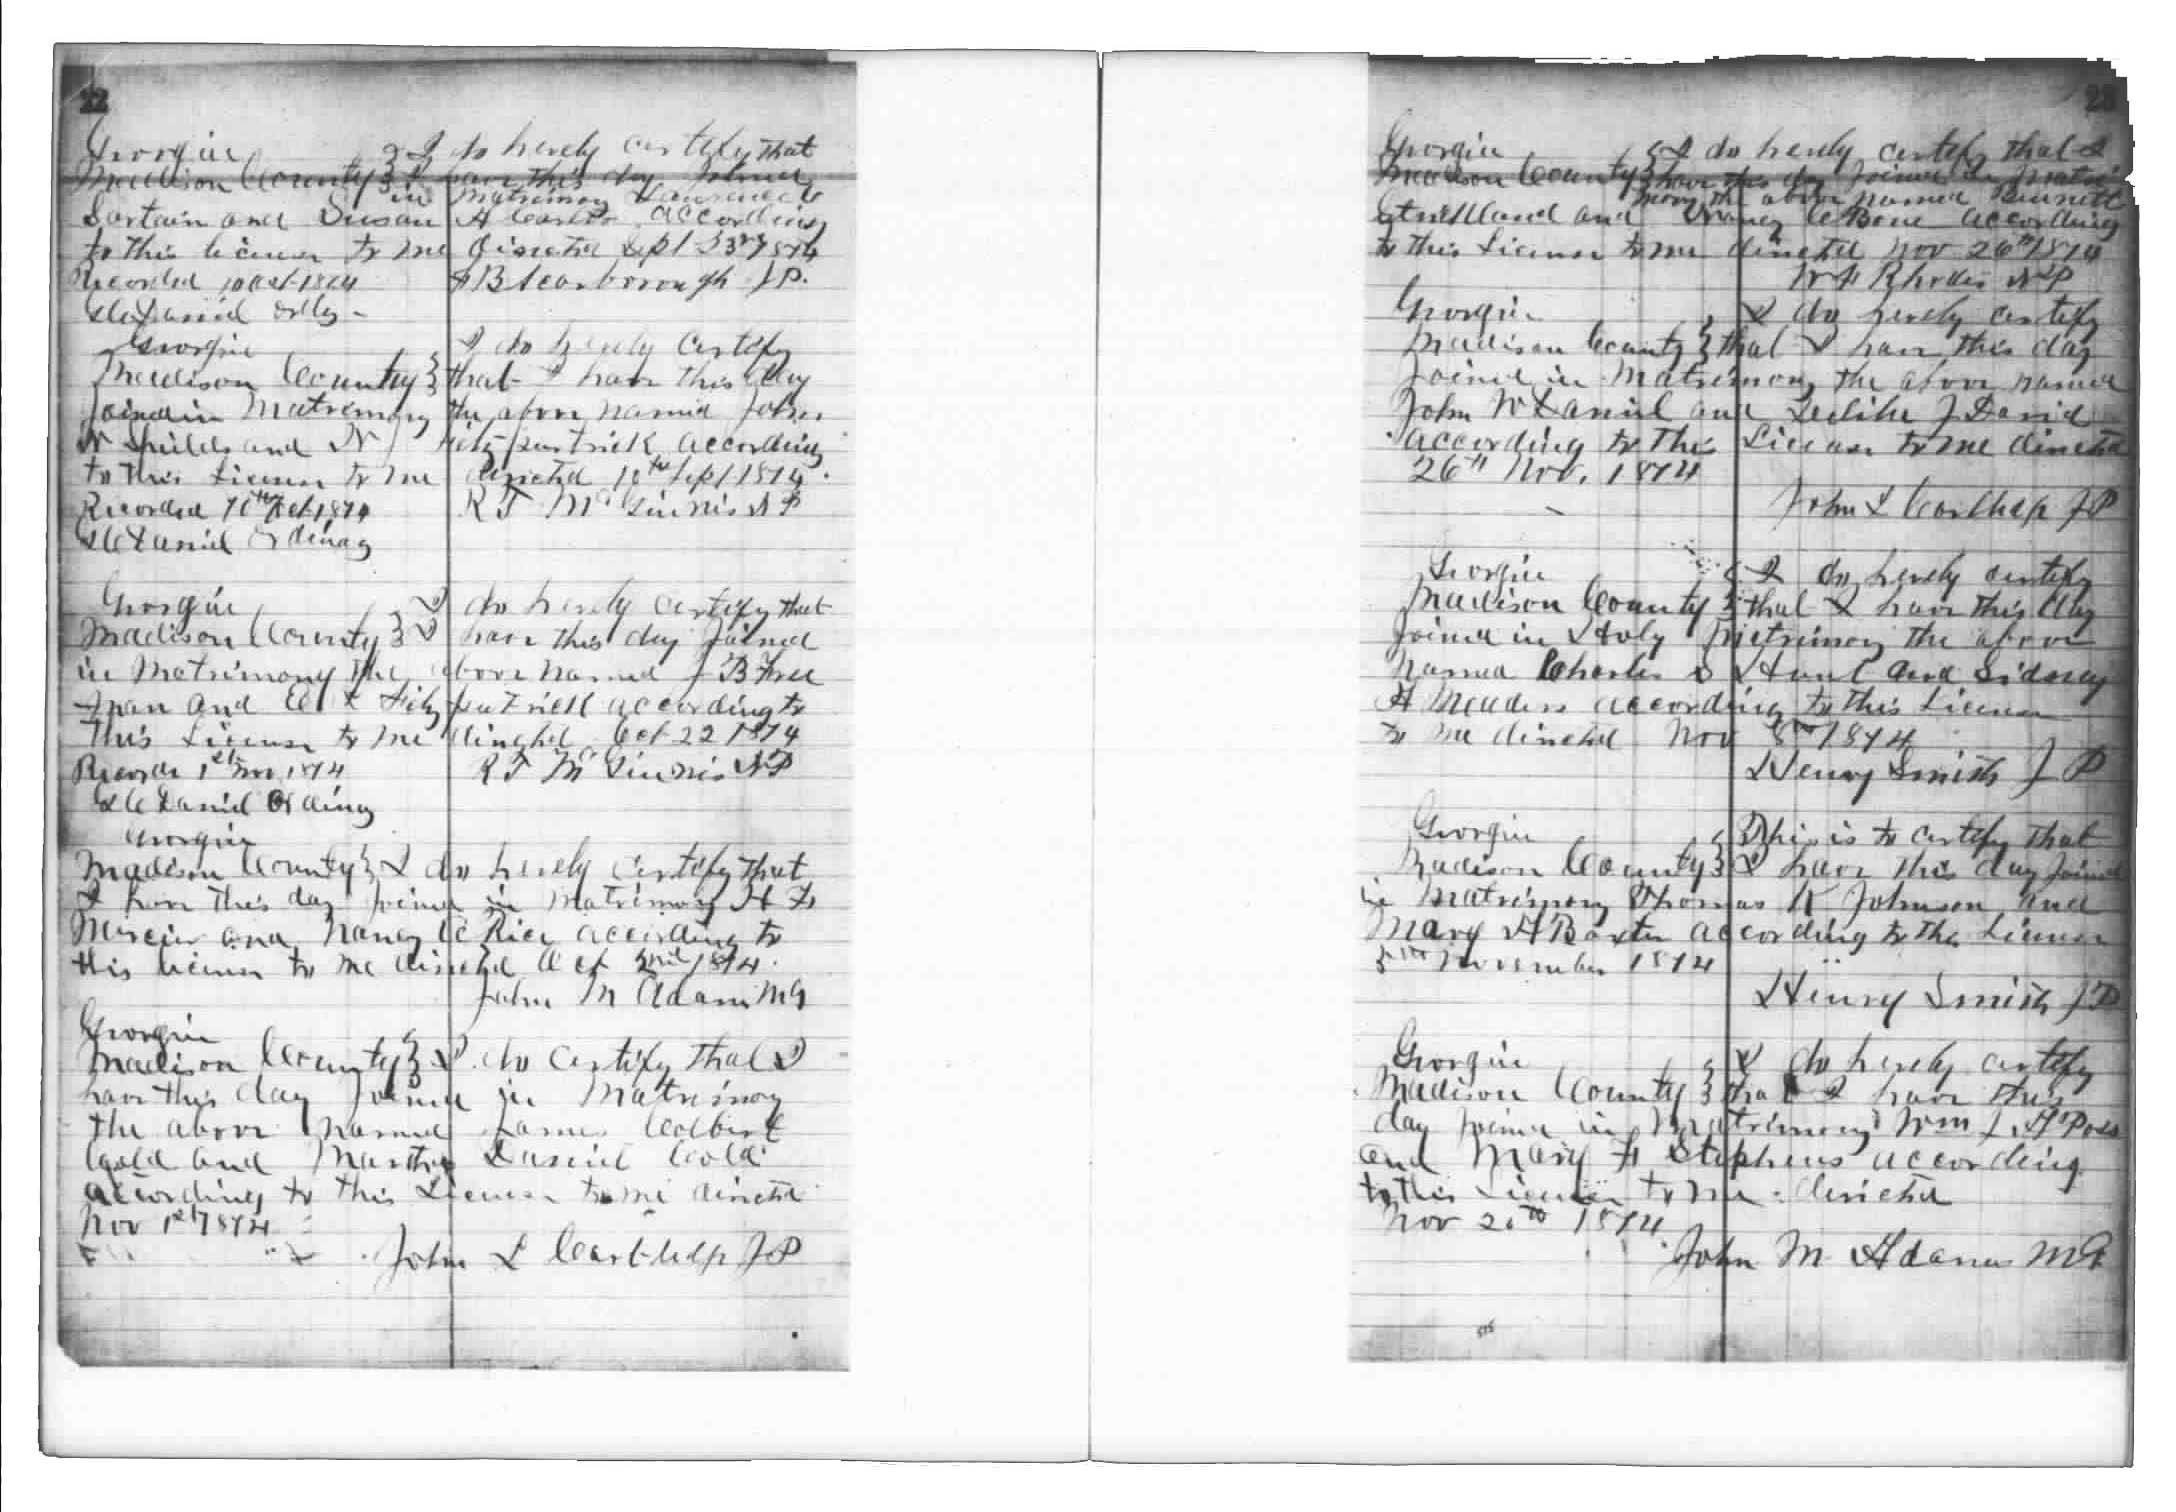 22
Georgia } I do hereby certify that
Madison County } I have this day joined
in Matrimony Lawrence C
Sartain and Susan A according
to this License to me directed Sept 1874
Recorded 10 Oct 1874 Scarborough J.P.
Daniel Ordy
Georgia I do hereby certify
Madison County } that I have this day
Joined in Matrimony the above named John
N Shields and N J Fitzpatrick according
to this License to me directed 10th Sept 1874
Recorded 10th Oct 1874 R T McGinnis N P
Daniel Ordinary
Georgia I do hereby certify that
Madison County } I have this day Joined
in Matrimony the above named J B Free
man and E L Fitzpatrick according to
this License to me directed Oct 22 1874
Records 1st Nov 1874 R T McGinnis N P
Daniel Ordinary
Georgia
Madison County } I do hereby certify that
I have this day Joined in Matrimony H F
Mercier and Nancy C Rice according to
this License to me directed Oct 2nd 1874.
John M Adams MG
Georgia
Madison County } I do certify that I
have this day Joined in Matrimony
the above named James Colbert
Cold and Martha Daniel Cold
according to this License to me directed
Nov 1st 1874
John L J P
Georgia } I do hereby certify that I
Madison County } have this day Joined in Matri
mony the above named Bennett
Strickland and Nancy C Bone according
to this License to me directed Nov 26th 1874
W F Rhodes N P
Georgia I do hereby certify
Madison County } that I have this day
Joined in Matrimony the above named
John W Daniel and J David
according to the License to me directed
26th Nov. 1874
John L J P
Georgia I do hereby certify
Madison County } that I have this day
Joined in Holy Matrimony the above
named Charles S Hunt and Sidney
A Meaders according to this License
to me directed Nov 1874
Henry Smith J P
Georgia This is to certify that
Madison County } I have this day Joined
in Matrimony Thomas K Johnson and
Mary A Baxter according to the License
5th November 1874
Henry Smith J P
Georgia I do hereby certify
Madison County } that I have this
day Joined in Matrimony Wm J H Poss
and Mary F Stephens according
to this License to me directed
Nov 1874
John M Adams MG